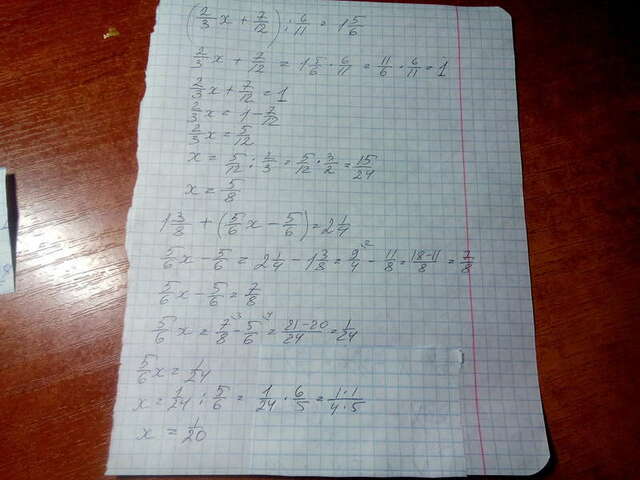 (2/3 x + 7/12) : 6/11 = 1 5/6
2/3 x + 7/12 = 1 5/6 · 6/11 = 11/6 · 6/11 = 1
2/3 x + 7/12 = 1
2/3 x = 1 - 7/12
2/3 x = 5/12
x = 5/12 : 2/3 = 5/12 · 3/2 = 15/24
x = 5/8
1 3/8 + (5/6 x - 5/6) = 2 1/4
5/6 x - 5/6 = 2 1/4 - 1 3/8 = 9/4 ² - 11/8 = 18-11/8 = 7/8
5/6 x - 5/6 = 7/8
5/6 x = 7/8 ³ - 5/6 ⁴ = 21-20/24 = 1/24
5/6 x = 1/24
x = 1/24 : 5/6 = 1/24 · 6/5 = 1·1/4·5
x = 1/20